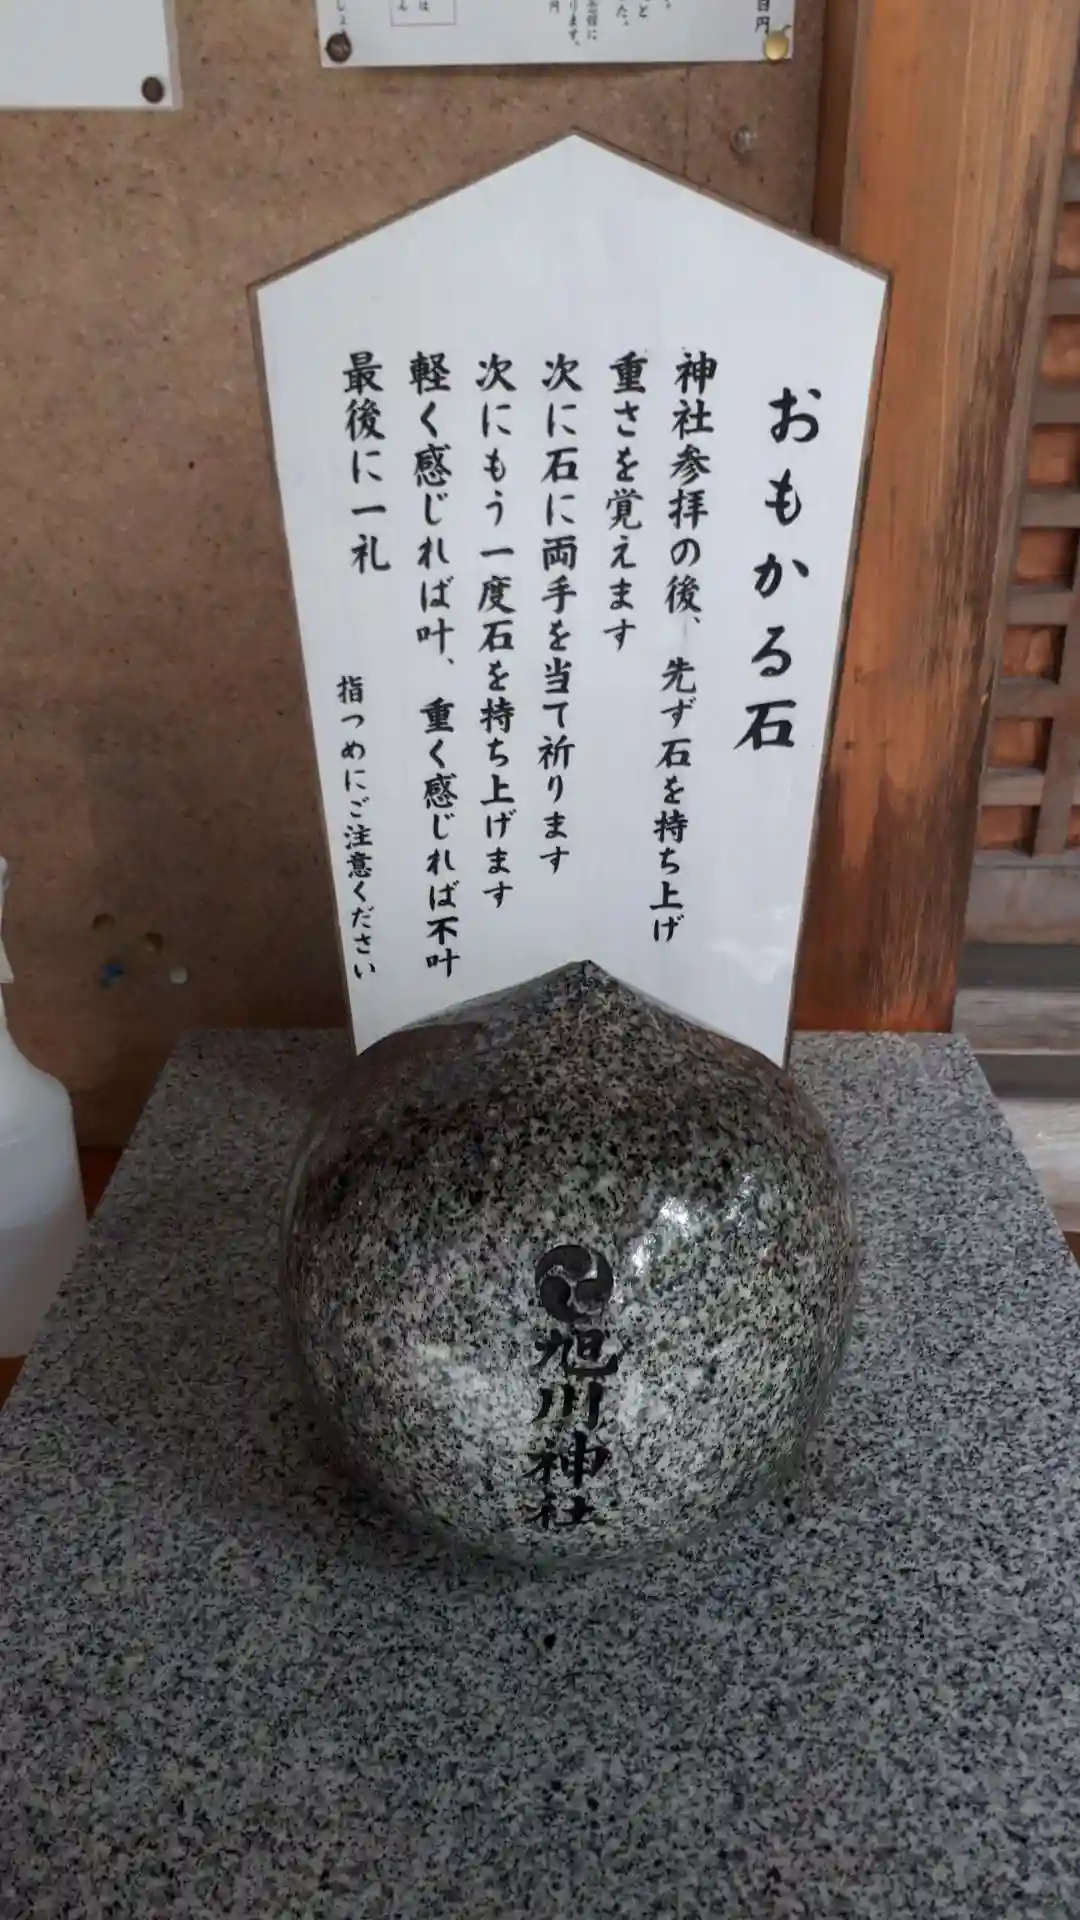 おもかる石
神社参拝の後、先ず石を持ち上げ
重さを覚えます
次に石に両手を当て祈ります
次にもう一度石を持ち上げます
軽く感じれば叶、重く感じれば不叶
最後に一礼
指つめにご注意ください
旭川神社